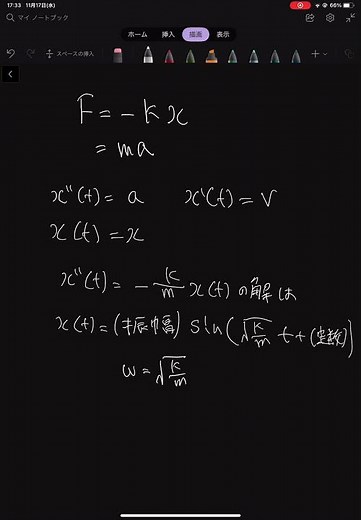 17:33 11月17日(水) 66%
マイ ノートブック
ホーム 挿入 描画 表示
スペースの挿入
F = -kx
= ma
x''(t) = a x'(t) = v
x(t) = x
x''(t) = -k/m x(t) の解は
x(t) = (振幅) sin(√k/m t + (定数))
ω = √k/m